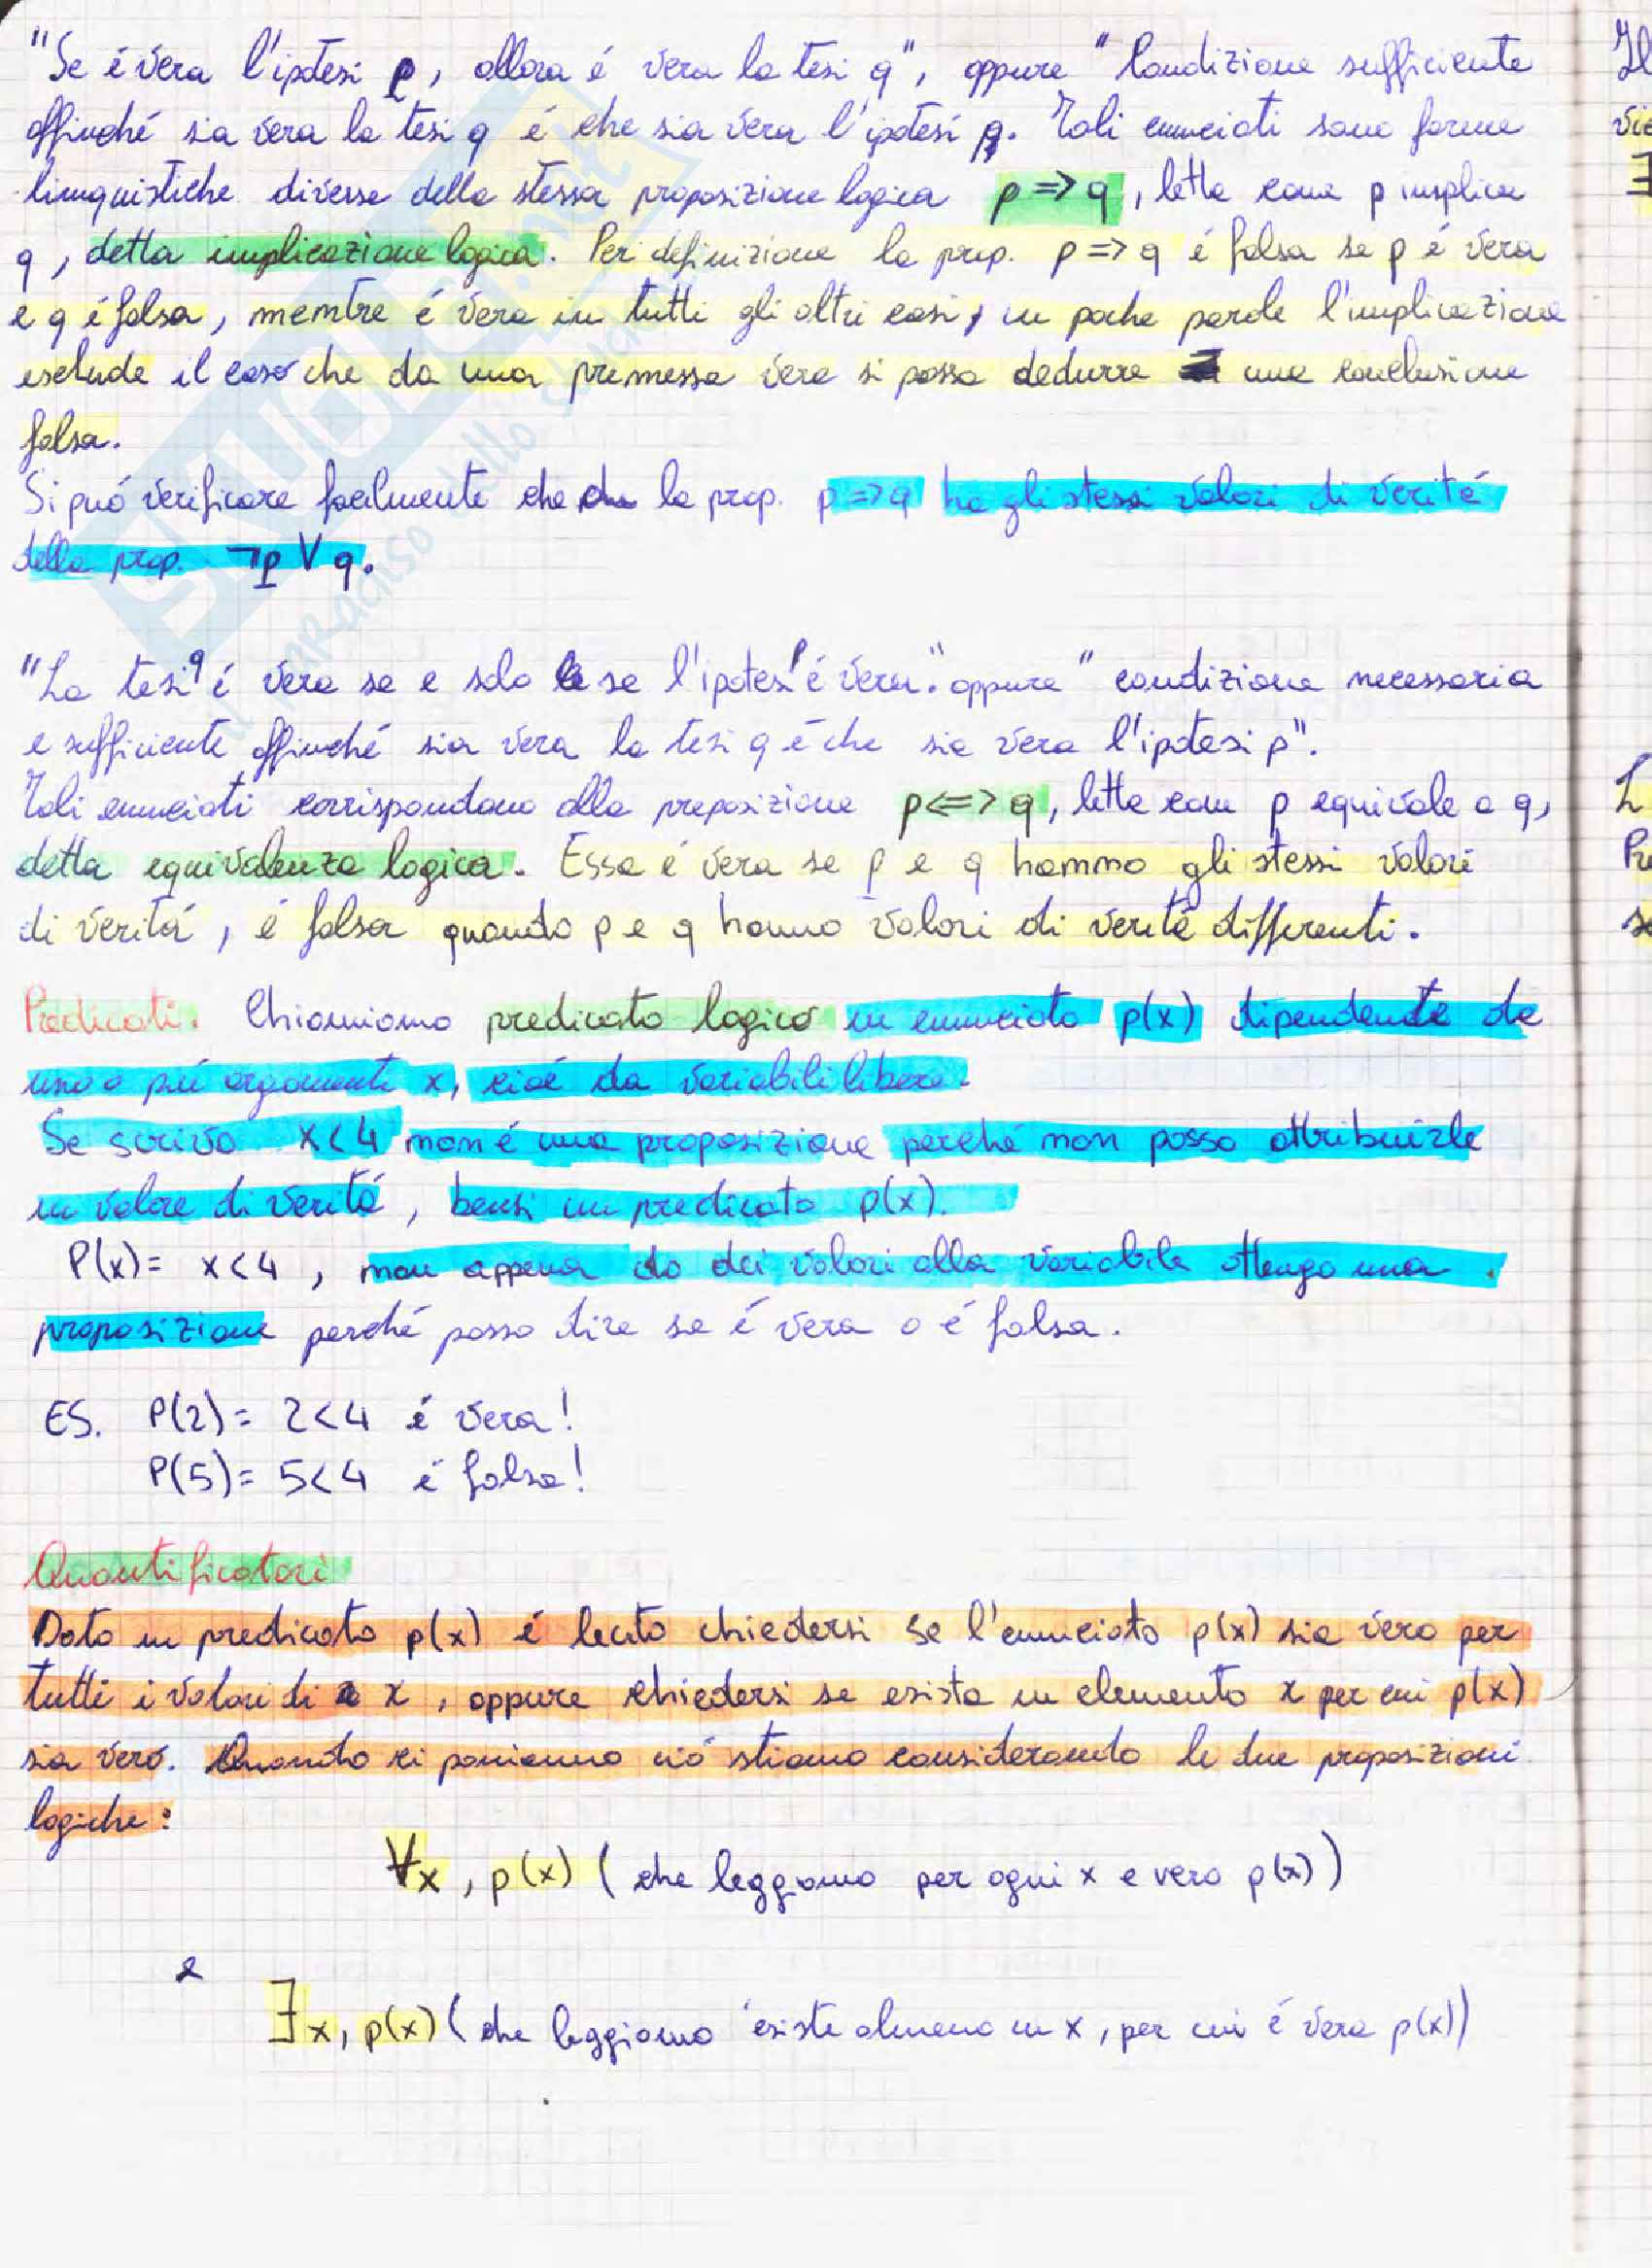 "Se é vera l'ipotesi p, allora é vera la tesi q", oppure "Condizione sufficiente
affinché sia vera la tesi q é che sia vera l'ipotesi p. Tali enunciati sono forme
linguistiche diverse della stessa proposizione logica p => q, letta come p implica
q, detta implicazione logica. Per definizione la prop. p => q é falsa se p é vera
e q é falsa, mentre é vera in tutti gli altri casi, in poche parole l'implicazione
esclude il caso che da una premessa vera si possa dedurre una conclusione
falsa.
Si puó verificare facilmente che la prop. p => q ha gli stessi valori di veritá
della prop. ¬p V q.
"La tesi q é vera se e solo se l'ipotesi p é vera." oppure "condizione necessaria
e sufficiente affinché sia vera la tesi q é che sia vera l'ipotesi p".
Tali enunciati corrispondono alla proposizione p <=> q, letta come p equivale a q,
detta equivalenza logica. Essa é vera se p e q hanno gli stessi valori
di veritá, é falsa quando p e q hanno valori di veritá differenti.
Predicati. Chiamiamo predicato logico un enunciato p(x) dipendente da
uno o piú argomenti x, cioé da variabili libere.
Se scrivo x<4 non é una proposizione perché non posso attribuirle
un valore di veritá, bensi un predicato p(x).
P(x)= x<4, non appena do dei valori alla variabile ottengo una
proposizione perché posso dire se é vera o é falsa.
ES. P(2)= 2<4 é vera!
P(5)= 5<4 é falsa!
Quantificatori
Dato un predicato p(x) é lecito chiedersi se l'enunciato p(x) sia vero per
tutti i valori di x, oppure chiedersi se esista un elemento x per cui p(x)
sia vero. Quando ci poniamo ció stiamo considerando le due proposizioni
logiche:
∀x, p(x) (che leggiamo per ogni x e vero p(x))
e
∃x, p(x) (che leggiamo esiste almeno un x, per cui é vera p(x))